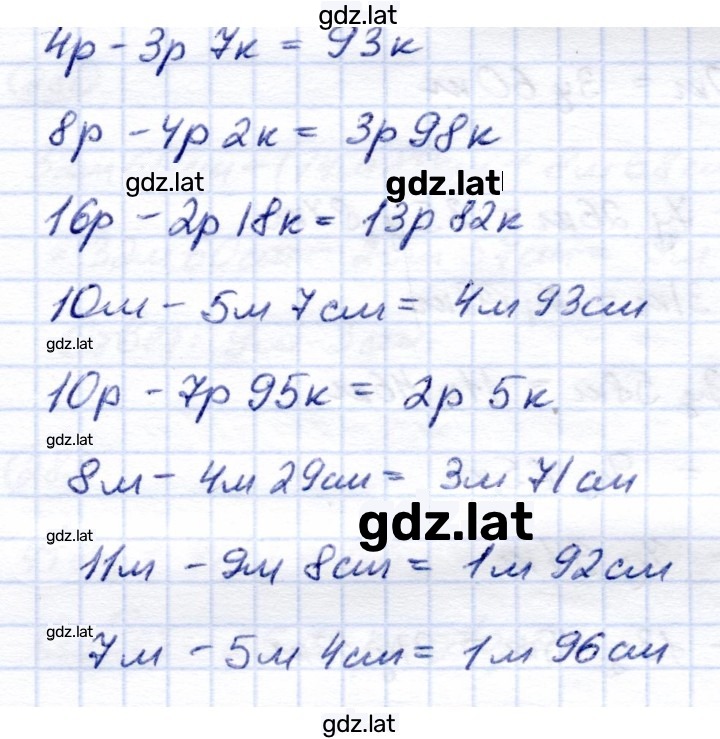 gdz.lat
4р - 3р 7к = 93к
8р - 4р 2к = 3р 98к
gdz.lat gdz.lat
16р - 2р 18к = 13р 82к
10м - 5м 7см = 4м 93см
gdz.lat
10р - 7р 95к = 2р 5к
gdz.lat
8м - 4м 29см = 3м 71см
gdz.lat
gdz.lat
11м - 9м 8см = 1м 92см
gdz.lat
7м - 5м 4см = 1м 96см
gdz.lat